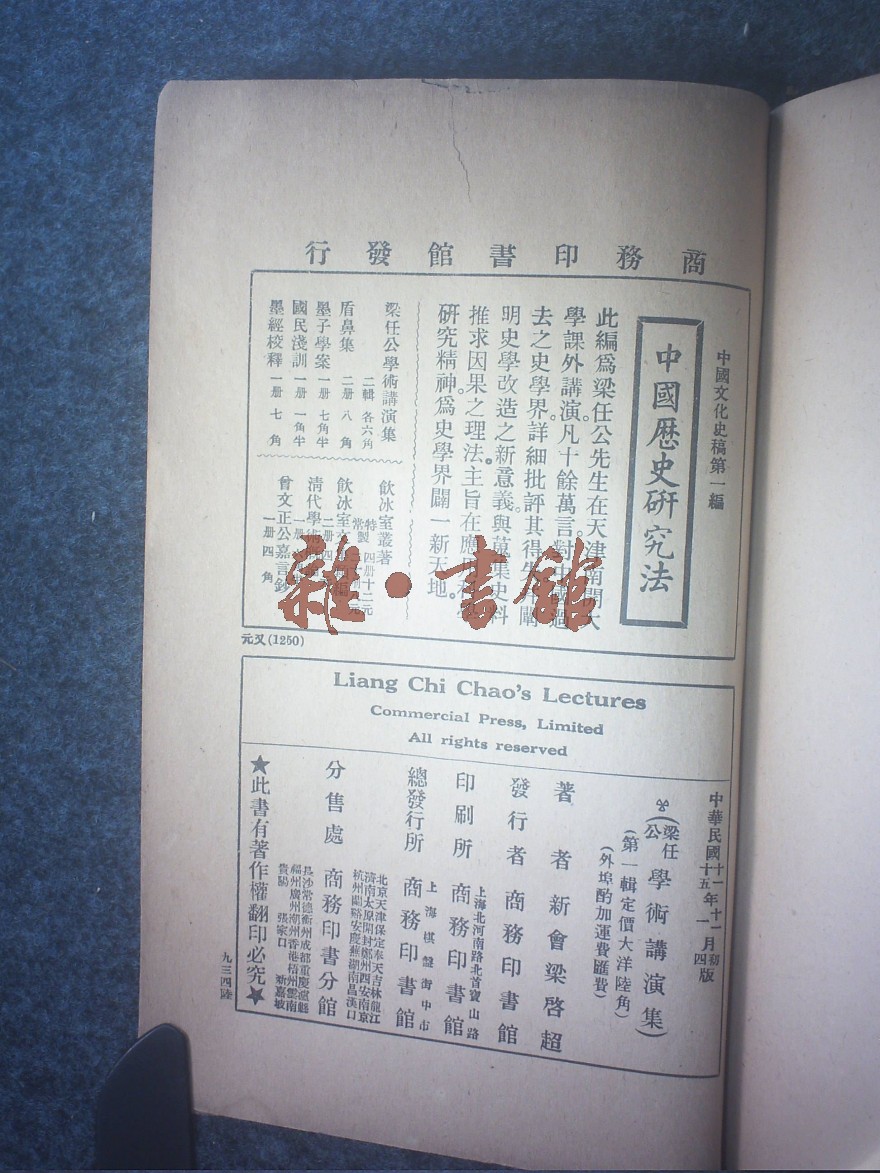 商務印書館發行
中國文化史稿第一編
中國歷史研究法
此編爲梁任公先生在天津南開大
學課外講演。凡十餘萬言。對中國過
去之史學界。詳細批評其得失。闡
明史學改造之新意義。與蒐集史料
推求因果之理法。主旨在應用
研究精神。爲史學界闢一新天地。
梁任公學術講演集 二輯 各六角
盾鼻集 二册 八角
墨子學案 一册 七角半
國民淺訓 一册 一角半
墨經校釋 一册 七角
飲冰室叢著
特製 四册 十二元
常製
飲冰室
二册 四
清代學術
曾文正公嘉言鈔
一册 四角
元又(1250)
雜·書館
Liang Chi Chao's Lectures
Commercial Press, Limited
All rights reserved
中華民國十一年十一月初版
十五年一月四版
(梁任公學術講演集)
(第一輯定價大洋陸角)
(外埠酌加運費匯費)
著者 新會梁啓超
發行者 商務印書館
印刷所 上海北河南路北首寶山路 商務印書館
總發行所 上海棋盤街中市 商務印書館
分售處 商務印書分館
北京天津保定奉天吉林龍江
濟南太原開封鄭州西安南京
杭州蘭谿安慶蕪湖南昌漢口
長沙常德衡州成都重慶瀘縣
福州廣州潮州香港梧州雲南
貴陽 張家口 新嘉坡
★此書有著作權翻印必究★
九三四陸